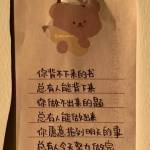 你背不下来的书
总有人能背下来
你做不出来的题
总有人能做出来
你愿意拖到明天的事
总有人今天努力做完